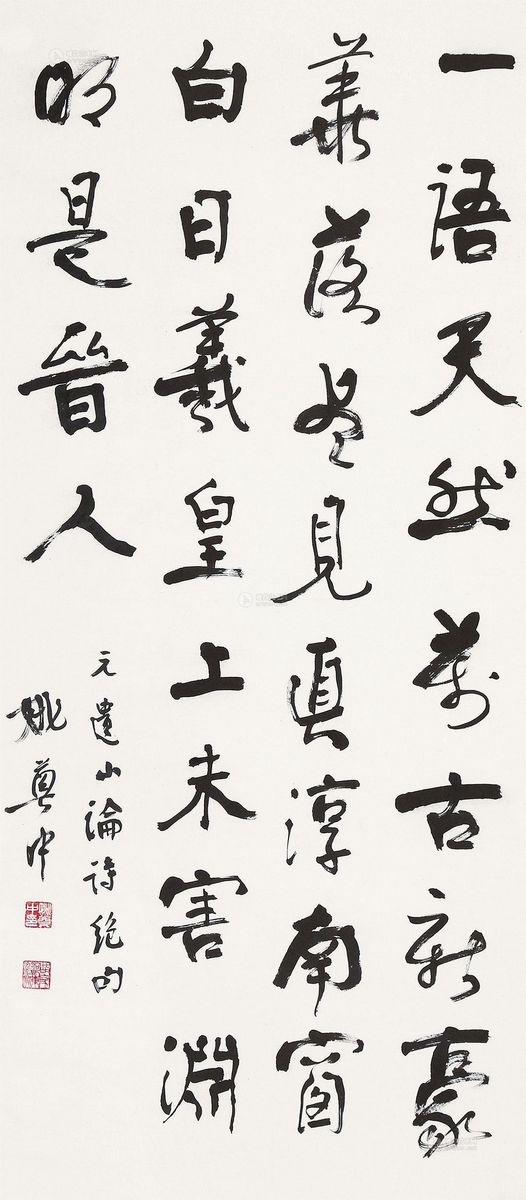 一語天然萬古新豪
華落盡見真淳南窗
白日羲皇上未害淵
明是晉人
元遺山論詩絕句
姚奠中